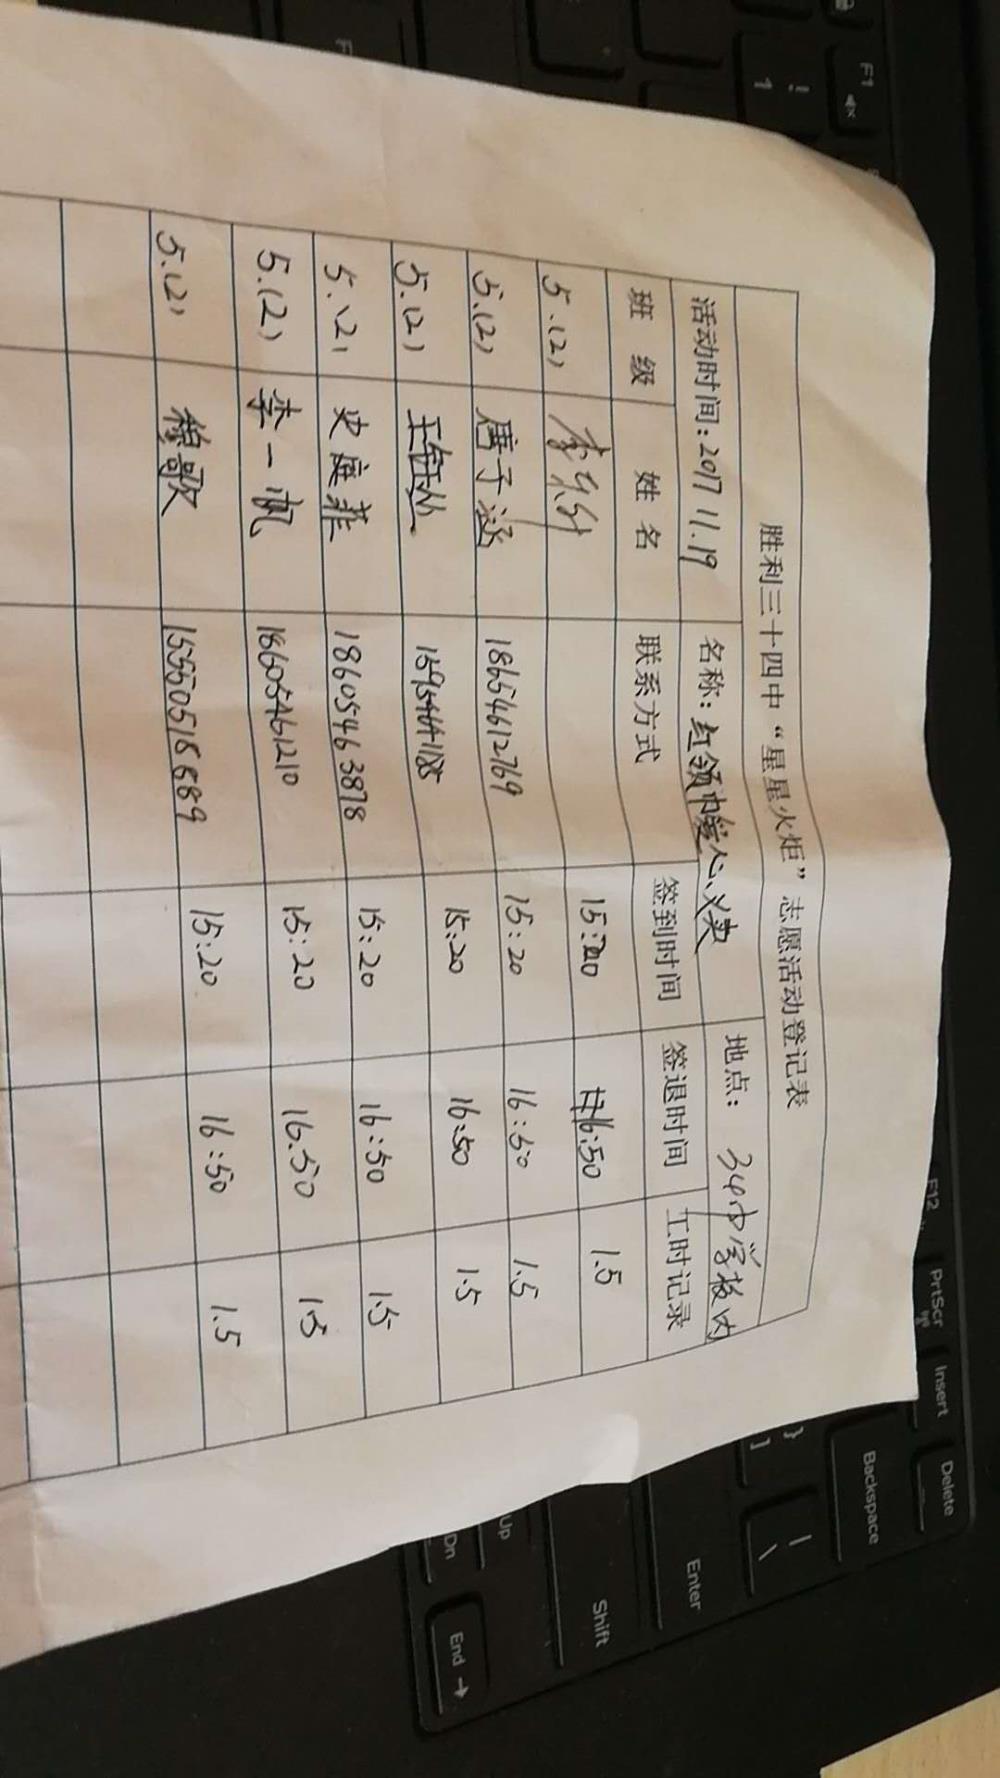 胜利三十四中“星星火炬”志愿活动登记表
活动时间：2017 11.19 名称：红领巾爱心义卖 地点： 34中学校内
班 级 姓 名 联系方式 签到时间 签退时间 工时记录
5.(2) 15:20 16:50 1.5
5.(2) 唐子涵 18654612769 15:20 16:50 1.5
5.(2) 15:20 16:50 1.5
5.(2) 史庭菲 18605463878 15:20 16:50 1.5
5.(2) 李一帆 18605461210 15:20 16.50 1.5
5.(2) 穆歌 15:20 16:50 1.5
F1
!
1
F12
PrtScr
Insert
Delete
Backspace
}
]
|
\
Enter
Shift
Up
Dn
End →